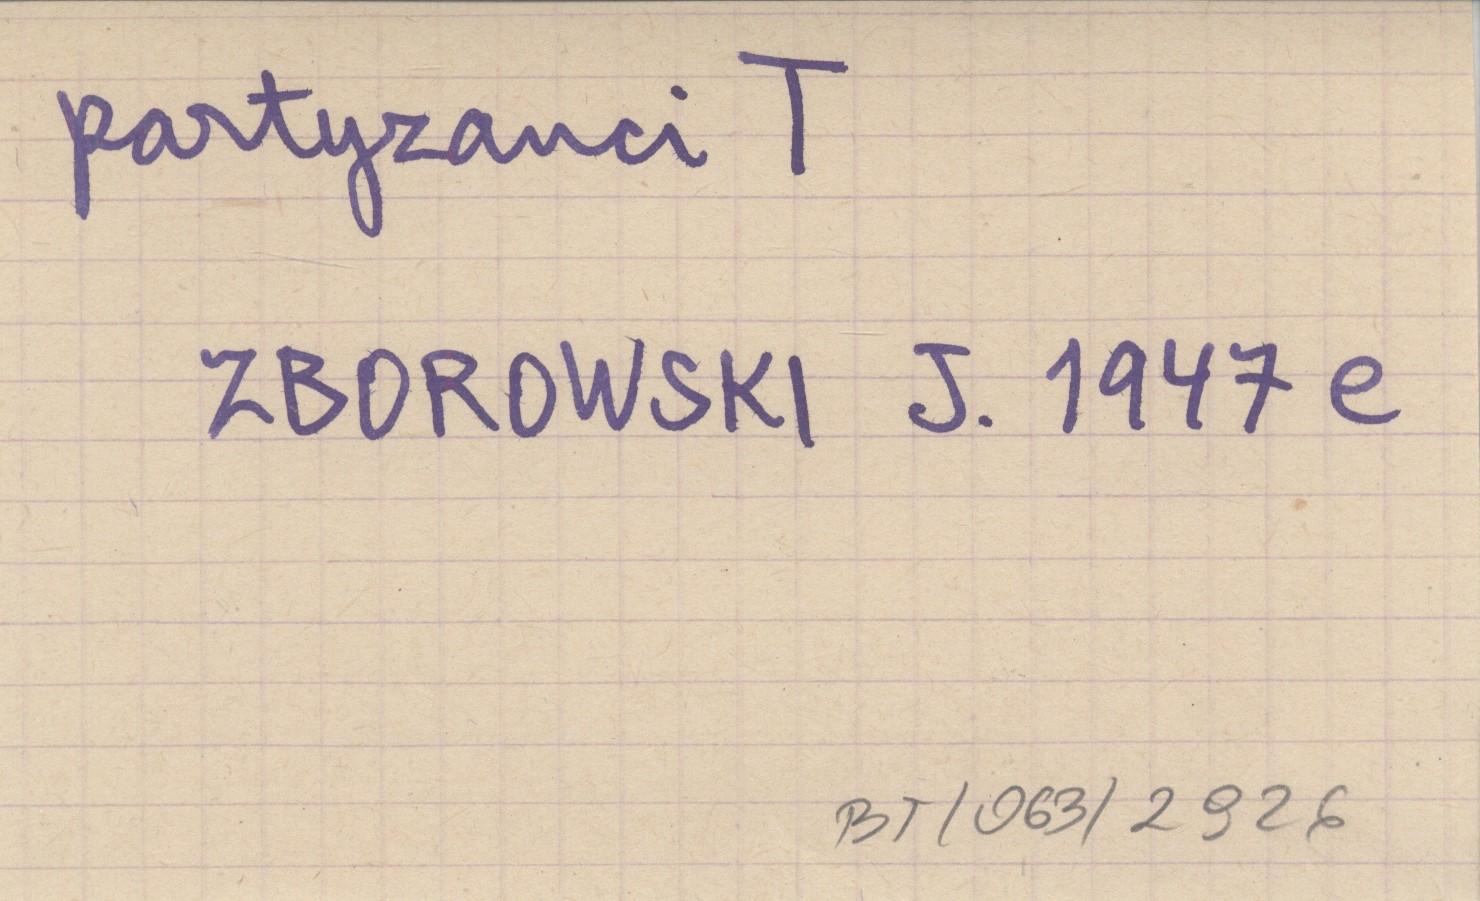 partyzanci T
ZBOROWSKI J. 1947 e
BT/063/2926